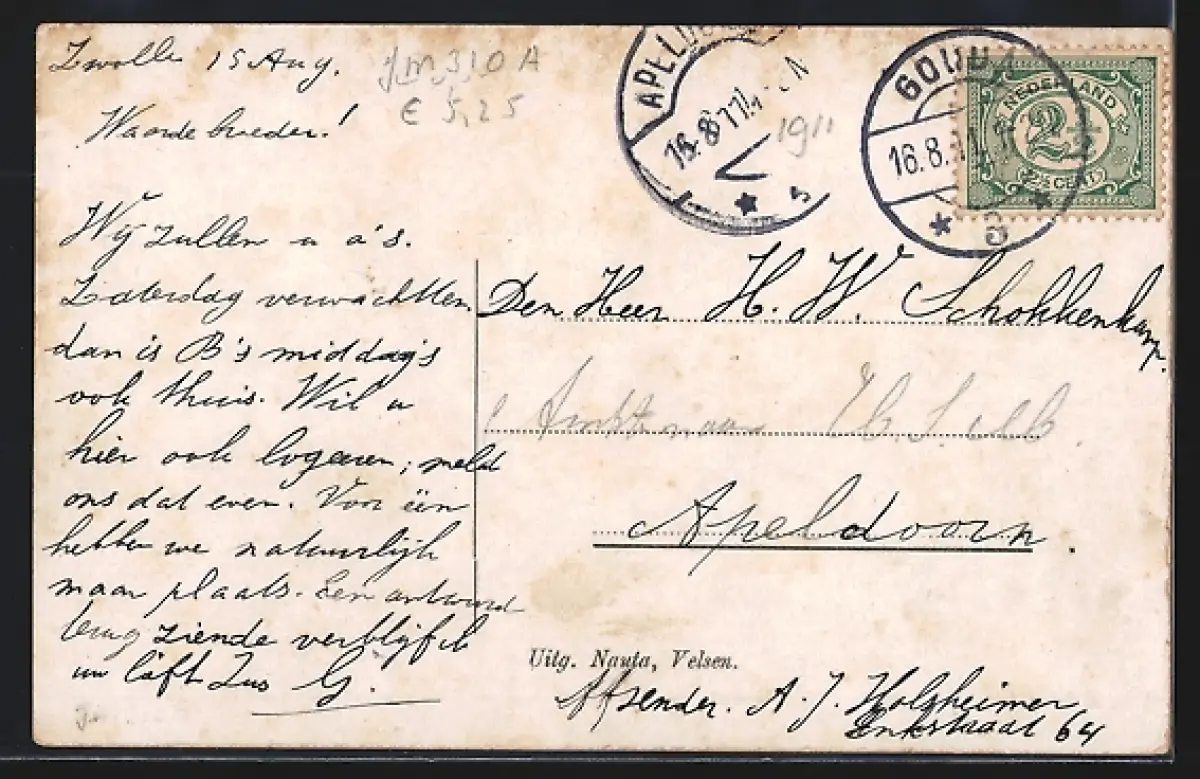 Zwolle 15 Aug.
JM 310 A
€ 5,25
Waarde broeder!
Wij zullen u a's.
Zaterdag verwachten.
dan is B's middag's
ook thuis. Wil u
hier ook logeeren, meld
ons dat even. Voor één
hebben we natuurlijk
maar plaats. Een antwoord
terug ziende verblijf ik
uw Zus G.
APELDOORN
16.8.11
1911
5
GOUDA
16.8.11
3
NEDERLAND
2½
2½ CENT
Den Heer H. W. Schokkenkamp
Ambtenaar
Apeldoorn.
Uitg. Nauta, Velsen.
Afsender. A. J. Holsheimer
Enkstraat 64